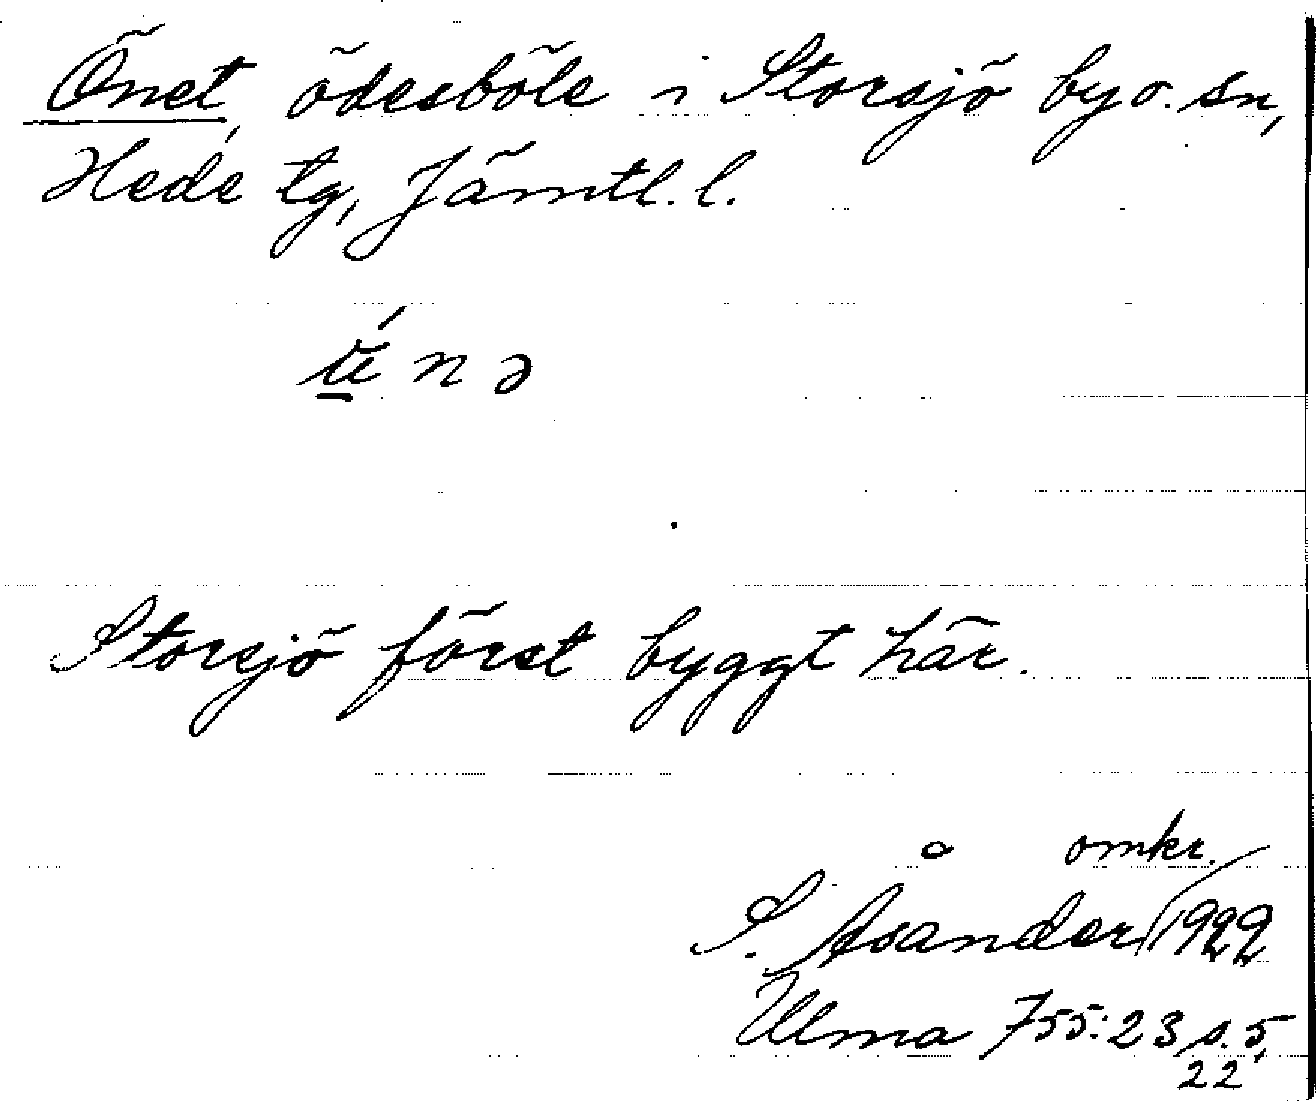 Önet, ödesböle i Storsjö by o. sn,
Hede tg, Jämtl. l.
n ə
Storsjö först byggt här.
omkr.
S. Åsander 1922
Ulma 755:23 s. 5,
22